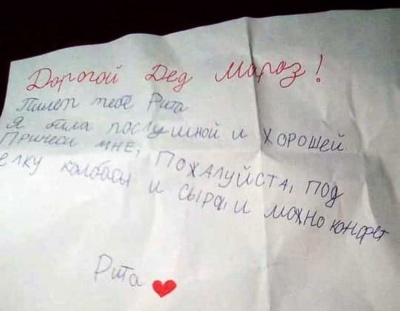 Дорогой Дед Мараз!
Пишет тебе Рита
Я была послушной и хорошей
Принеси мне, пожалуйста, под
елку колбасы и сыра, и можно конфет
Рита